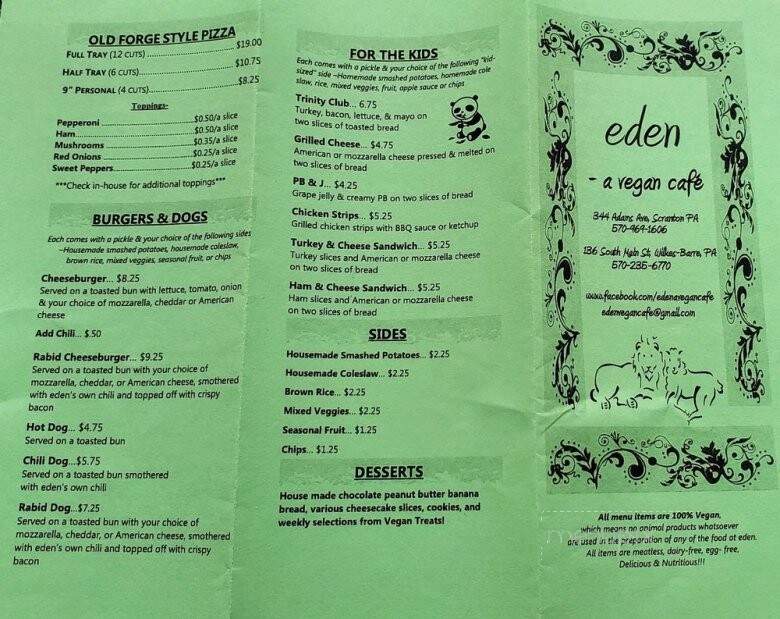 OLD FORGE STYLE PIZZA
FULL TRAY (12 CUTS)...$19.00
HALF TRAY (6 CUTS)...$10.75
9" PERSONAL (4 CUTS)...$8.25
Toppings-
Pepperoni...$0.50/a slice
Ham...$0.50/a slice
Mushrooms...$0.35/a slice
Red Onions...$0.25/a slice
Sweet Peppers...$0.25/a slice
***Check in-house for additional toppings***
BURGERS & DOGS
Each comes with a pickle & your choice of the following sides
~Housemade smashed potatoes, housemade coleslaw,
brown rice, mixed veggies, seasonal fruit, or chips
Cheeseburger... $8.25
Served on a toasted bun with lettuce, tomato, onion
& your choice of mozzarella, cheddar or American
cheese
Add Chili... $.50
Rabid Cheeseburger... $9.25
Served on a toasted bun with your choice of
mozzarella, cheddar, or American cheese, smothered
with eden's own chili and topped off with crispy
bacon
Hot Dog... $4.75
Served on a toasted bun
Chili Dog...$5.75
Served on a toasted bun smothered
with eden's own chili
Rabid Dog...$7.25
Served on a toasted bun with your choice of
mozzarella, cheddar, or American cheese, smothered
with eden's own chili and topped off with crispy
bacon
FOR THE KIDS
Each comes with a pickle & your choice of the following "kid-
sized" side ~Homemade smashed potatoes, homemade cole
slaw, rice, mixed veggies, fruit, apple sauce or chips
Trinity Club... 6.75
Turkey, bacon, lettuce, & mayo on
two slices of toasted bread
Grilled Cheese... $4.75
American or mozzarella cheese pressed & melted on
two slices of bread
PB & J... $4.25
Grape jelly & creamy PB on two slices of bread
Chicken Strips... $5.25
Grilled chicken strips with BBQ sauce or ketchup
Turkey & Cheese Sandwich... $5.25
Turkey slices and American or mozzarella cheese
on two slices of bread
Ham & Cheese Sandwich... $5.25
Ham slices and American or mozzarella cheese
on two slices of bread
SIDES
Housemade Smashed Potatoes... $2.25
Housemade Coleslaw... $2.25
Brown Rice... $2.25
Mixed Veggies... $2.25
Seasonal Fruit... $1.25
Chips... $1.25
DESSERTS
House made chocolate peanut butter banana
bread, various cheesecake slices, cookies, and
weekly selections from Vegan Treats!
eden
- a vegan café
344 Adams Ave, Scranton PA
570-969-1606
136 South Main St, Wilkes-Barre, PA
570-235-6770
www.facebook.com/edenavegancafe
edenvegancafe@gmail.com
All menu items are 100% Vegan,
which means no animal products whatsoever
are used in the preparation of any of the food at eden.
All items are meatless, dairy-free, egg- free,
Delicious & Nutritious!!!